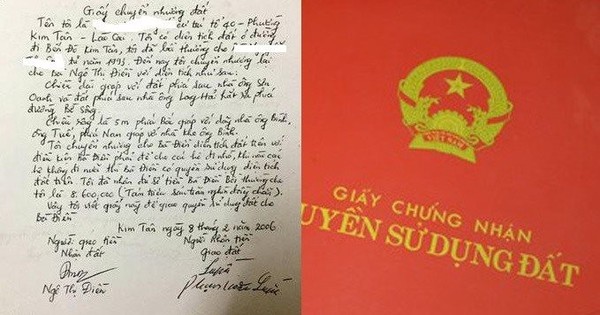 Giấy chuyển nhượng đất
Tên tôi là cư trú tổ 40 - Phường
Kim Tân - Lào Cai. Tôi có diện tích đất ở đường
đi Bến Đò Kim Tân, tôi đã bồi thường cho
từ năm 1993. Đến nay tôi chuyển nhượng lại
cho Bà Ngô Thị Điền với diện tích như sau.
Chiều dài giáp với đất phía sau nhà ông Sơn
Oanh và đất phía sau nhà ông Long Hải hắt ra phía
đường Bờ sông.
Chiều rộng là 5m phía Bắc giáp với dãy nhà ông Bình,
ông Tuê, phía Nam giáp với nhà kho ông Bình.
Tôi chuyển nhượng cho Bà Điền diện tích đất trên với
điều kiện Bà Điền phải để cho các hộ đi nhờ, khi nào các
hộ không đi nữa thì Bà Điền có quyền sử dụng diện tích
đất trên. Tôi đã nhận đủ số tiền Bà Điền bồi thường cho
tôi là 8.600.000 (Tám triệu sáu trăm nghìn đồng chẵn).
Vậy tôi viết giấy này để giao quyền sử dụng đất cho
Bà Điền
Kim Tân ngày 8 tháng 2 năm 2006
Người giao tiền Người nhận tiền
Nhận đất Giao đất
Ngô Thị Điền
VIỆT NAM
GIẤY CHỨNG NHẬN
UYỀN SỬ DỤNG ĐẤT